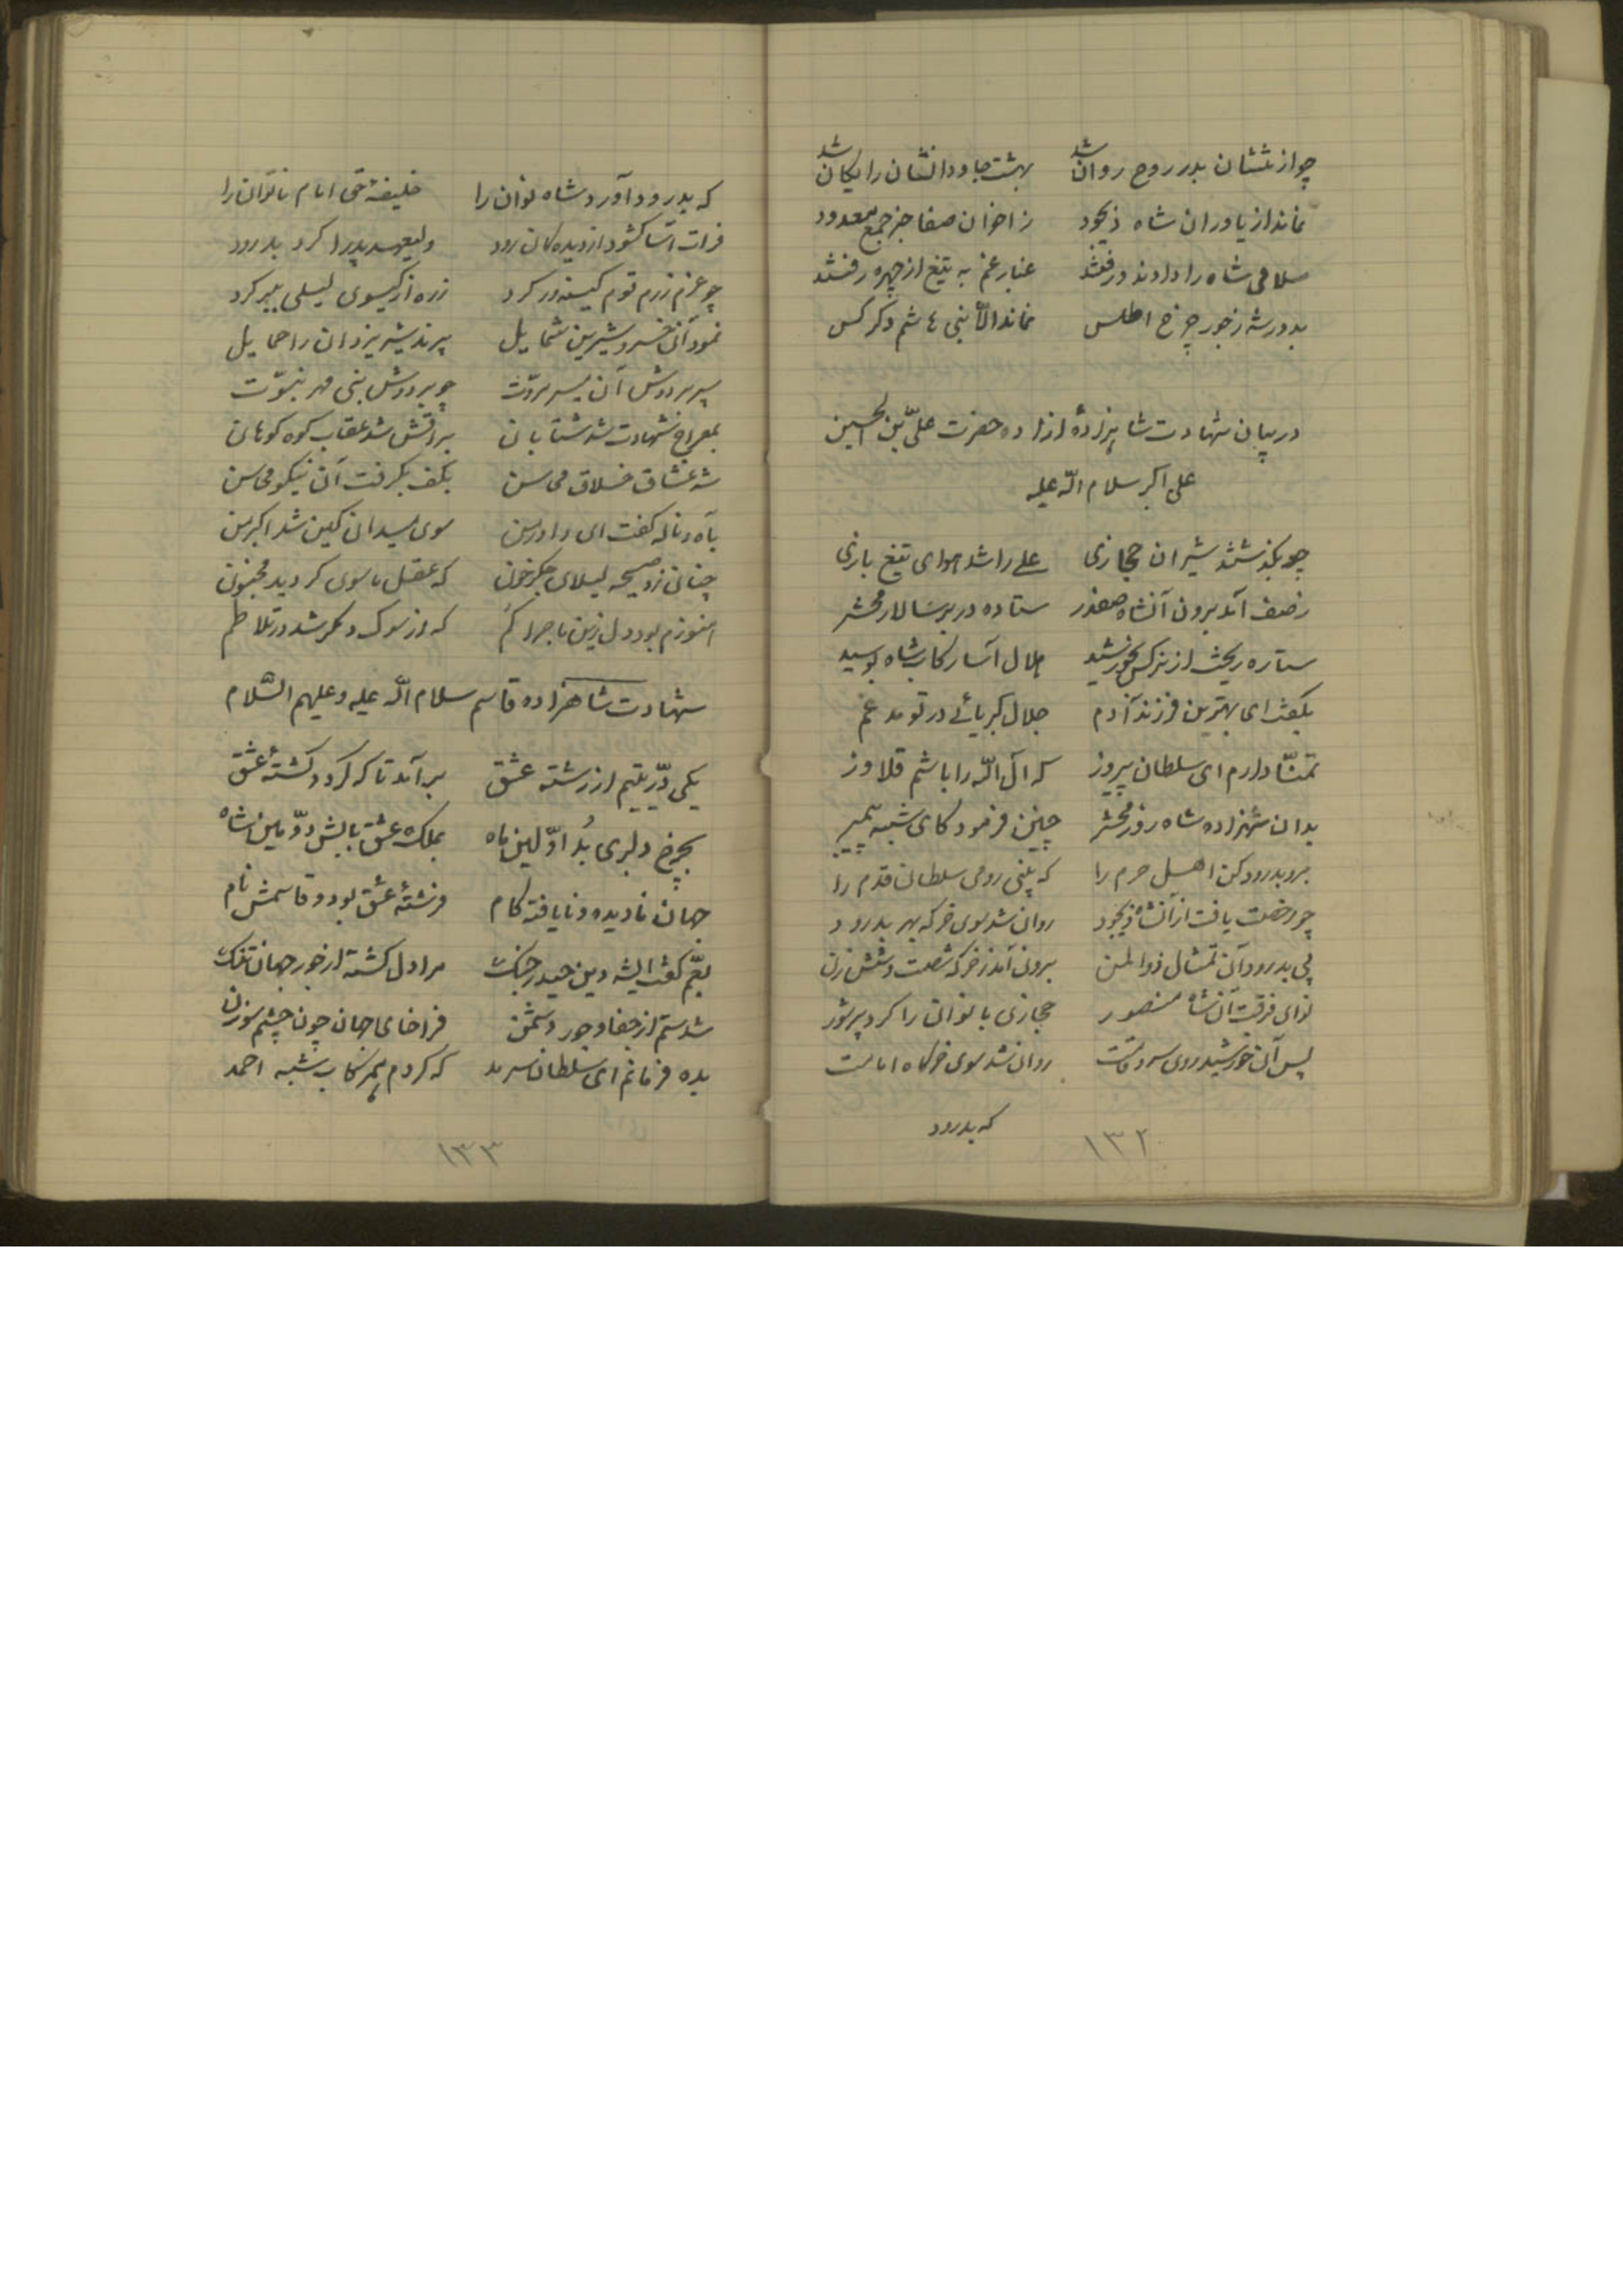 چو از تنشان بدر روح روان شد بهشت جاودانشان رایکان شد
نماند از یاوران شاه ذیجود ز اخوان صفا جز جمع معدود
سلامی شاه را دادند و رفتند غبار غم به تیغ از چهره رفتند
بدور شه ز جور چرخ اطلس نماند الّا بنی هاشم دکر کس
در بیان شهادت شاهزادهٔ ازاده حضرت علیّ بن الحسین
علی اکبر سلام اللّه علیه
چو بکذشتند شیران حجازی علی را شد هوای تیغ بازی
ز صف آمد برون آنشاه صفدر ستاده در بر سالار محشر
ستاره ریخت از نرکس بخورشید هلال آسا رکاب شاه بوسید
بکفت ای بهترین فرزند آدم جلال کبریائی در تو مدغم
تمنّا دارم ای سلطان پیروز که آل اللّه را باشم قلاوز
بدان شهزاده شاه روز محشر چنین فرمود کای شبه پیمبر
برو بدرود کن اهل حرم را که بینی روی سلطان قدم را
چو رخصت یافت از آنشاه ذیجود روان شد سوی خرکه بهر بدرود
پی بدرود آن تمثال ذوالمن برون آمد ز خرکه شصت و شش زن
نوای فرقت آن شاه منصور حجازی بانوان را کرد پرشور
پس آن خورشید روی سرو قامت روان شد سوی خرکاه امامت
که بدرود
۱۳۲
که بدرود آورد شاه نوان را خلیفهٔ حق امام ناتوان را
فرات آسا کشود از دیده کان رود ولیعهد پدر را کرد بدرود
چو عزم رزم قوم کینه‌ور کرد زره از کیسوی لیلی ببر کرد
نمود آن خسرو شیرین شمایل پرند شیر یزدان را حمایل
سپر بر دوش آن میر مروّت چو بر دوش نبی مهر نبوّت
بمعراج شهادت شد شتابان براقش شد عقاب کوه کوهان
شه عشاق خلاق محاسن بکف بکرفت آن نیکو محاسن
بآه و ناله کفت ای داور من سوی میدان کین شد اکبر من
چنان زد صیحه لیلای جکر خون که عقل ماسوی کردید مجنون
هنوزم بود دل زین ماجرا کم که از سوک دکر شد در تلاطم
شهادت شاهزاده قاسم سلام اللّه علیه و علیهم السّلام
یکی درّ یتیم از رشتهٔ عشق برآمد تا که کردد کشتهٔ عشق
بچرخ دلبری بُد اوّلین ماه بملک عشقبازیش دوّمین شاه
جهان نادیده و نایافته کام فرشتهٔ عشق بود و قاسمش نام
بعمّ کفت ایشه دین حیدر جنک مرا دل کشته از جور جهان تنک
شدستم از جفا و جور دشمن فراخای جهان چون چشم سوزن
بده فرمانم ای سلطان سرمد که کردم همرکاب شبه احمد
۱۳۳